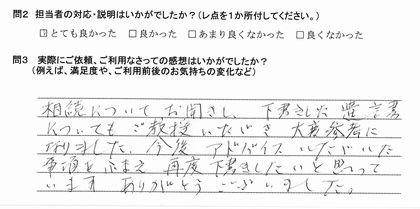 問2 担当者の対応・説明はいかがでしたか？（レ点を1か所付してください。）
☑とても良かった □良かった □あまり良くなかった □良くなかった
問3 実際にご依頼、ご利用なさっての感想はいかがでしたか？
（例えば、満足度や、ご利用前後のお気持ちの変化など）
相続についてお聞きし、下書きした遺言書
についてもご教授いただき大変参考に
なりました。今後アドバイスいただいた
事項をふまえ再度下書きしたいと思って
います ありがとうございました。